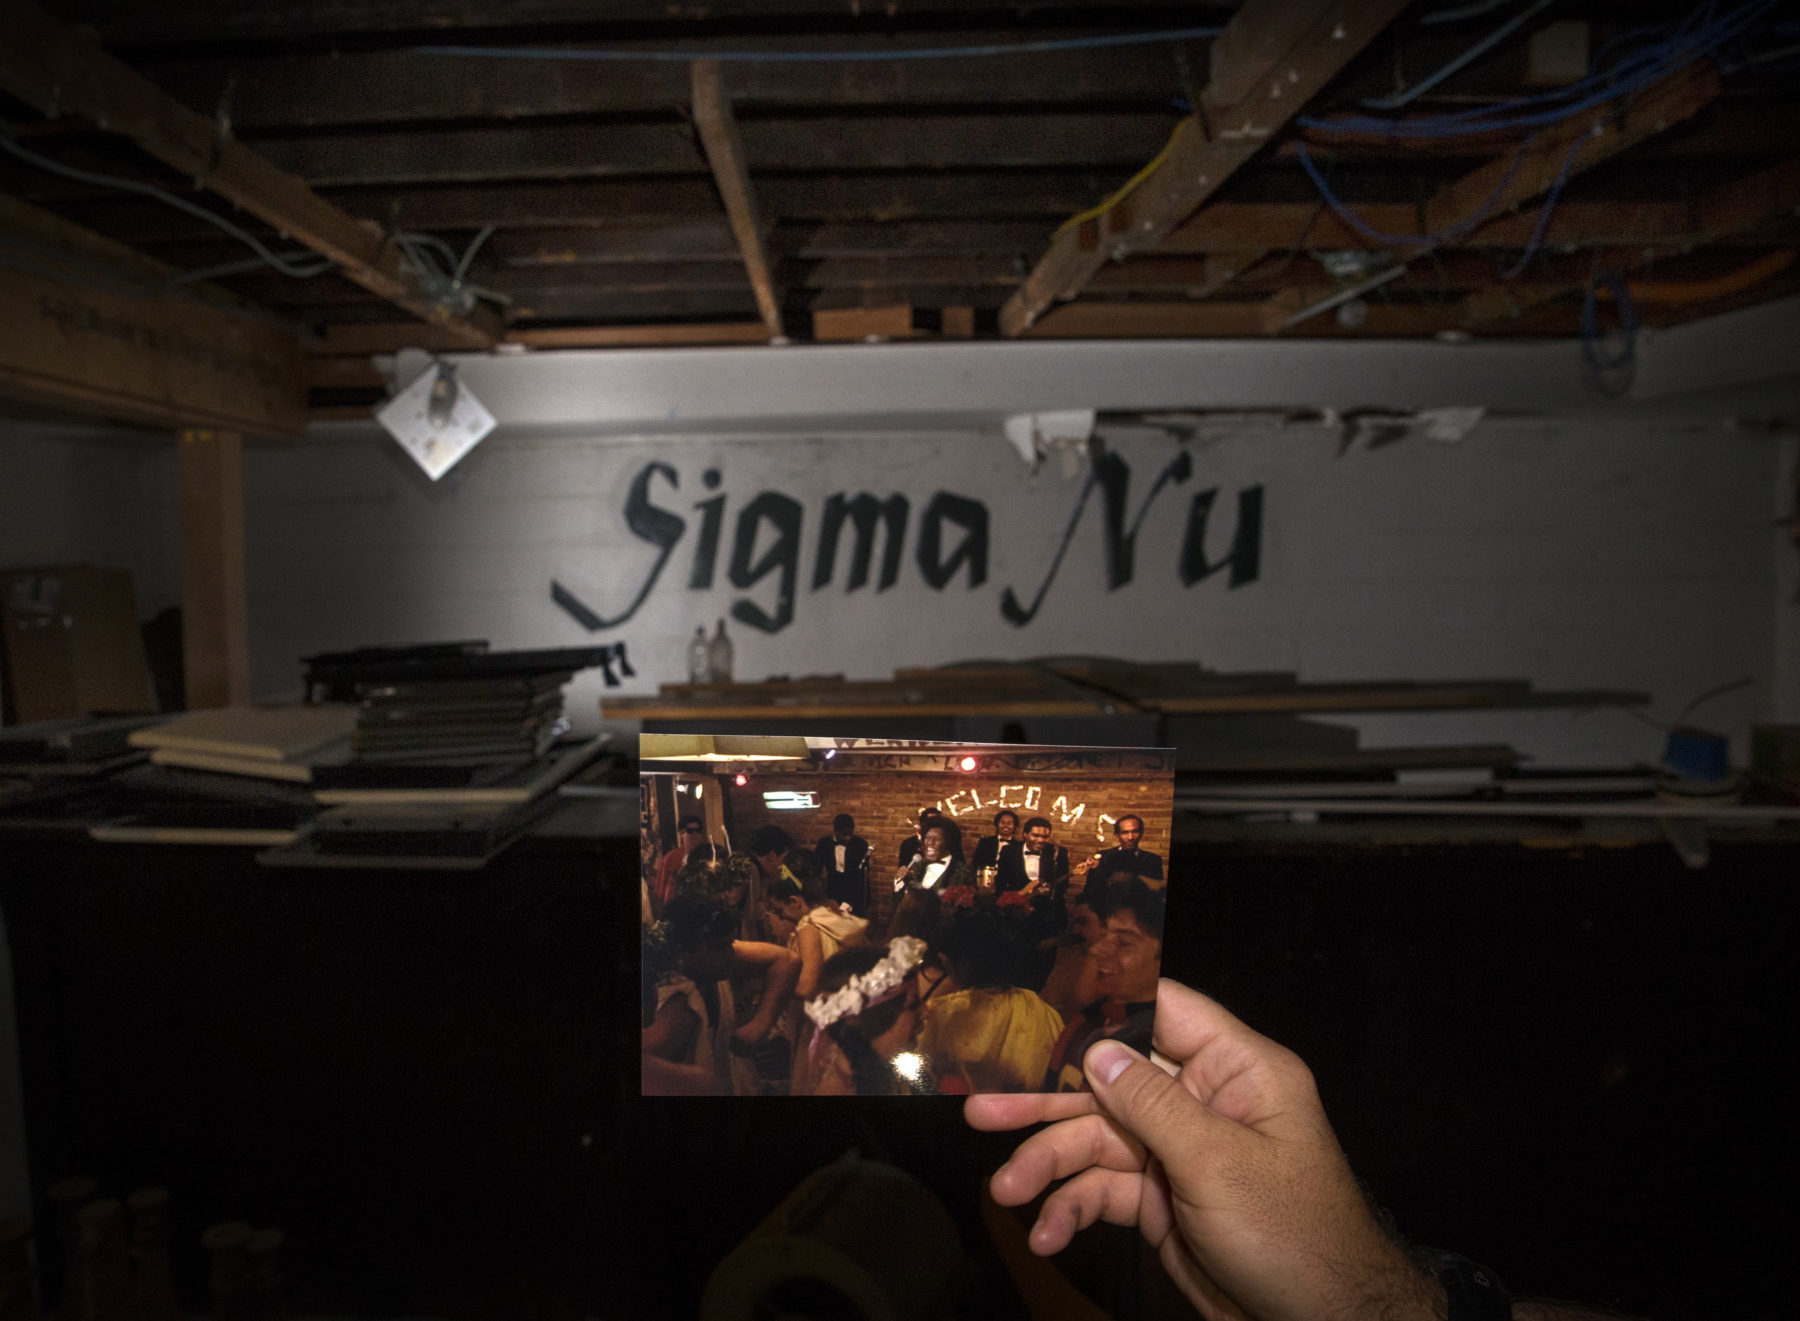 Sigma Nu
WELCOME